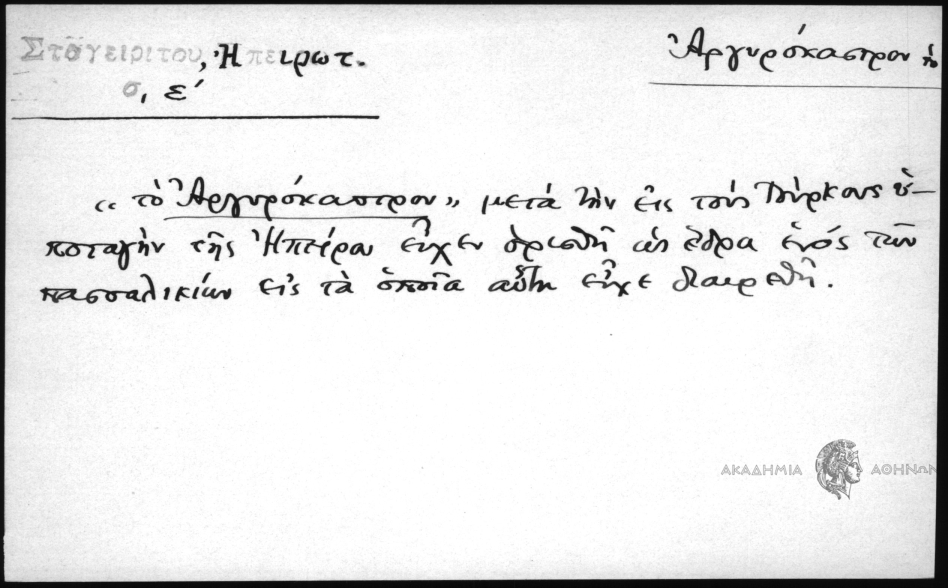 Σταγειρίτου, Ἠπειρωτ.
σ, ε´
Ἀργυρόκαστρον τὸ
«τὸ Ἀργυρόκαστρον» μετὰ τὴν εἰς τοὺς Τούρκους ὑ-
ποταγὴν τῆς Ἠπείρου εἶχεν ὁρισθῆ ὡς ἕδρα ἑνὸς τῶν
πασσαλικίων εἰς τὰ ὁποῖα αὕτη εἶχε διαιρεθῆ.
ΑΚΑΔΗΜΙΑ ΑΘΗΝΩΝ